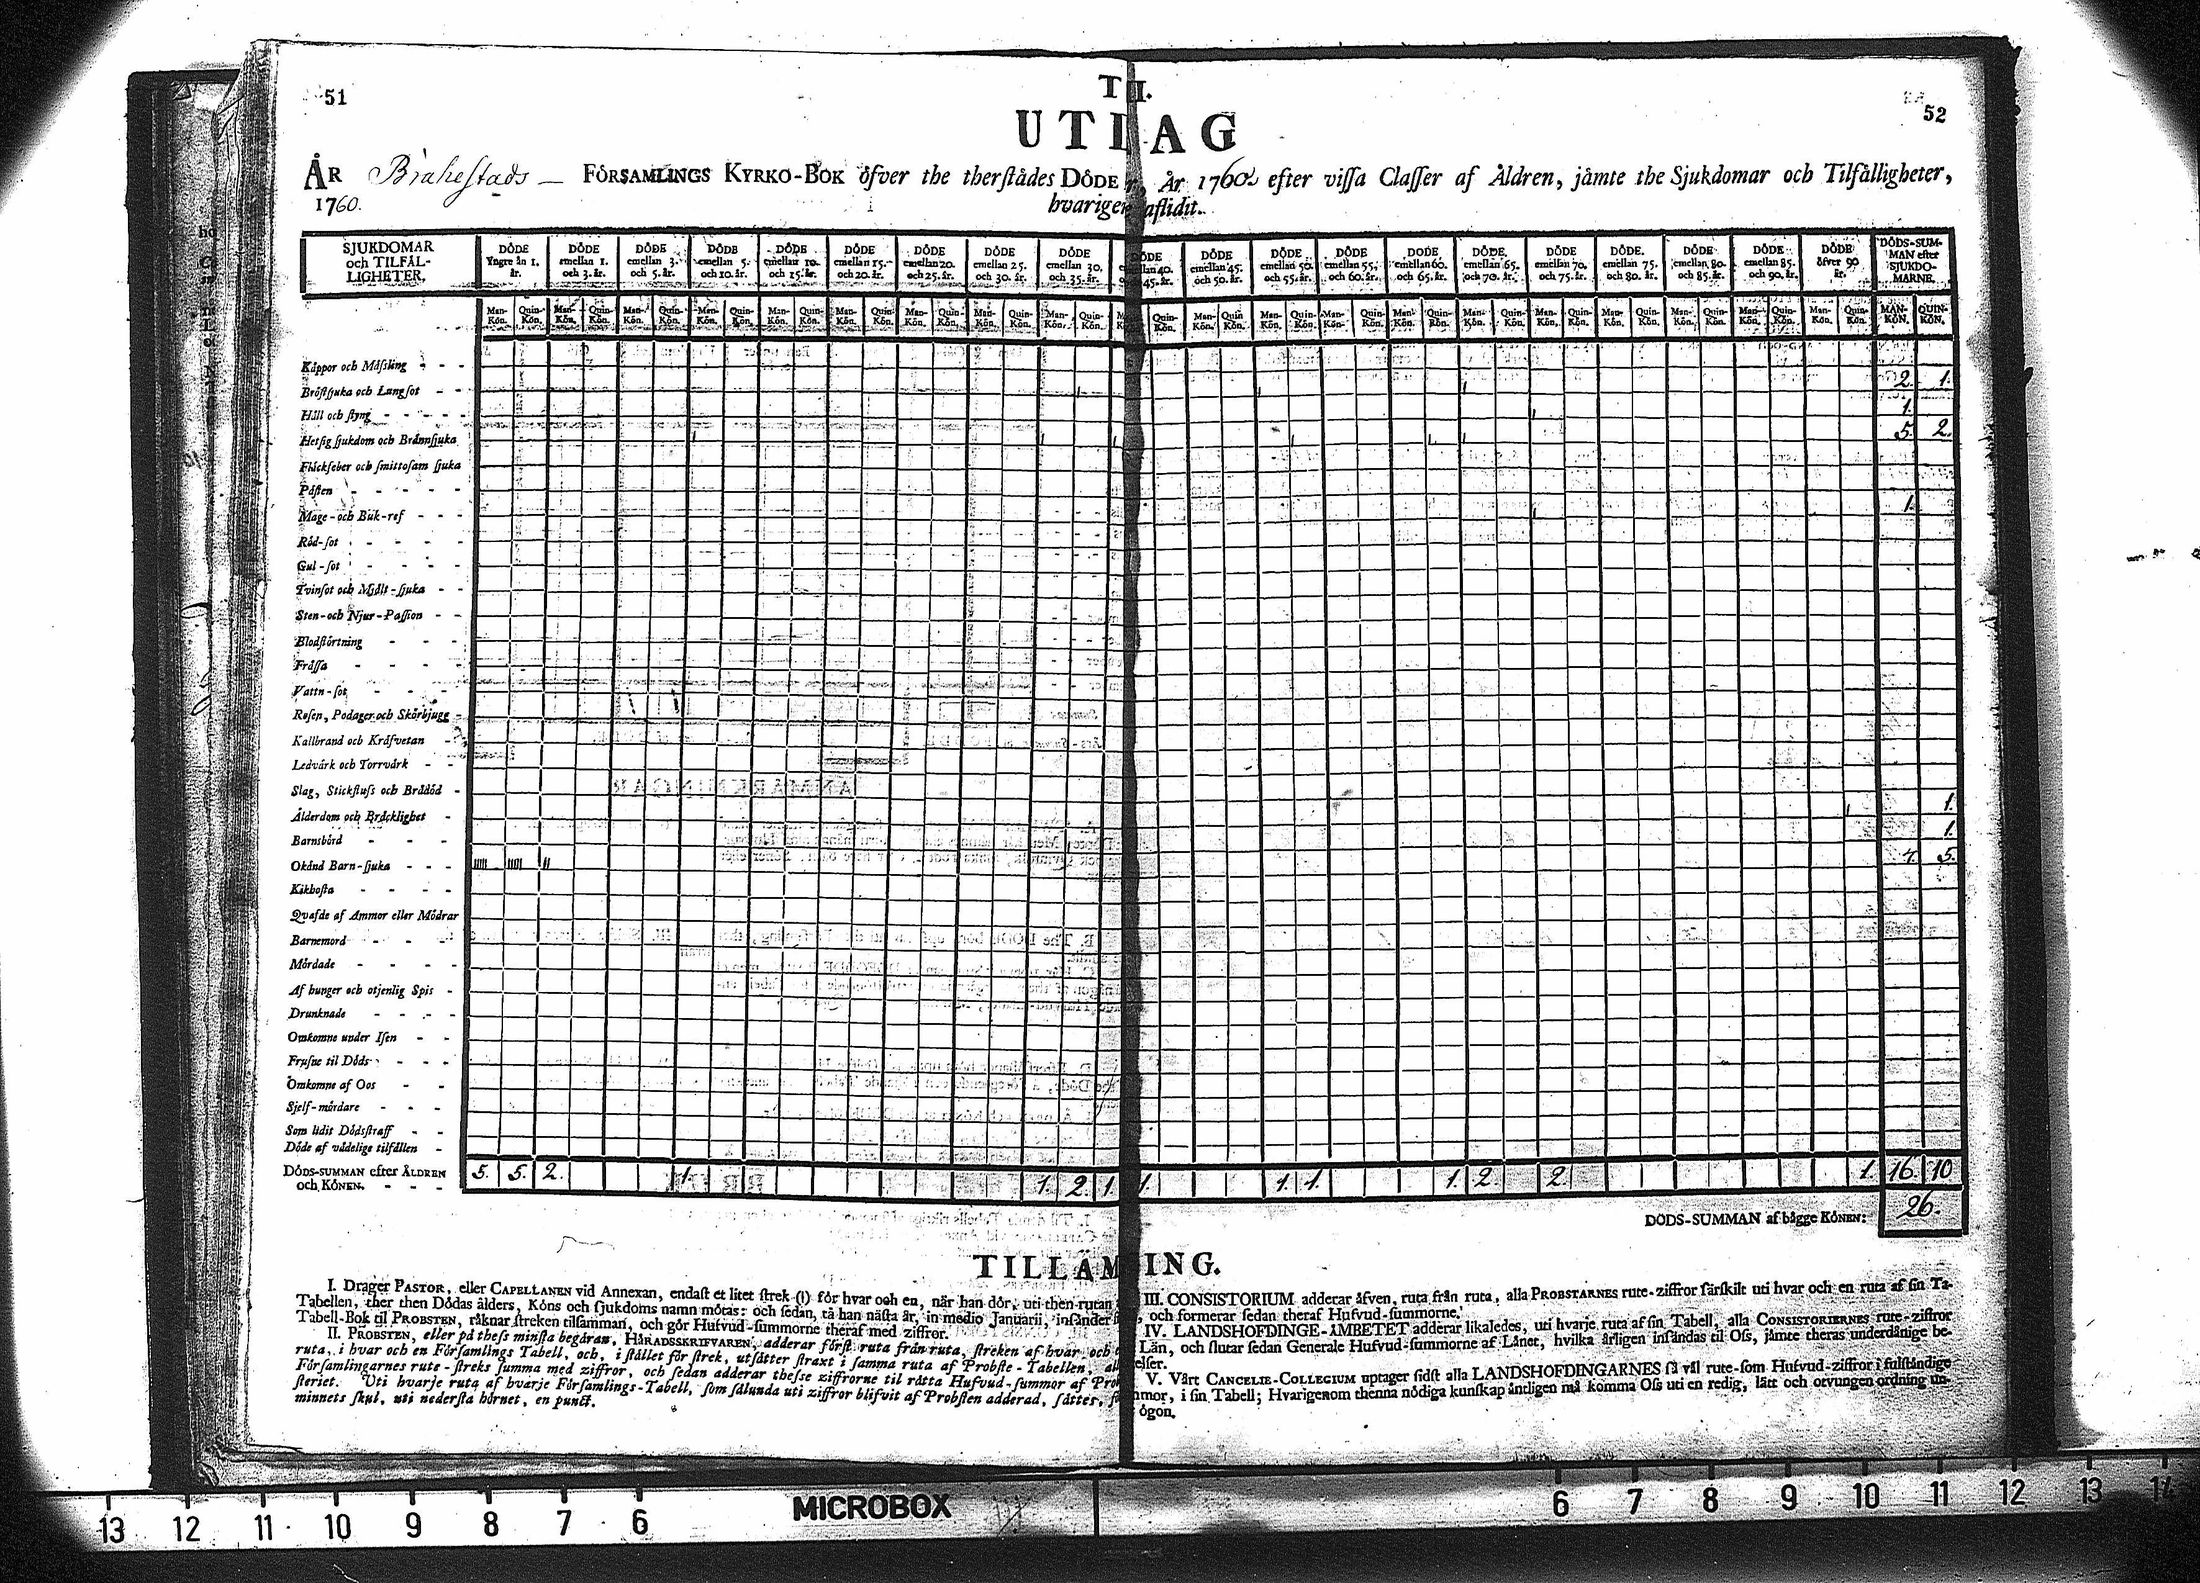 51
52
T II.
UTLAG
ÅR Brahestads — FÖRSAMLINGS KYRKO-BOK öfver the therstädes DÖDE r, År 1760 efter vissa Classer af Åldren, jämte the Sjukdomar och Tilfälligheter,
1760. hvarigen aflidit.
SJUKDOMAR och TILFÄL-LIGHETER. DÖDE Yngre än 1. år. DÖDE emellan 1. och 3. år. DÖDE emellan 3. och 5. år. DÖDE emellan 5. och 10. år. DÖDE emellan 10. och 15. år. DÖDE emellan 15. och 20. år. DÖDE emellan 20. och 25. år. DÖDE emellan 25. och 30. år. DÖDE emellan 30. och 35. år. DÖDE 40. 45. år. DÖDE emellan 45. och 50. år. DÖDE emellan 50. och 55. år. DÖDE emellan 55. och 60. år. DÖDE emellan 60. och 65. år. DÖDE. emellan 65. och 70. år. DÖDE emellan 70. och 75. år. DÖDE. emellan 75. och 80. år. DÖDE emellan 80. och 85. år. DÖDE emellan 85. och 90. år. DÖDE öfver 90 år. DÖDS-SUM-MAN efter SJUKDO-MARNE.
Man-Kön. Quin-Kön. Man-Kön. Quin-Kön. Man-Kön. Quin-Kön. Man-Kön. Quin-Kön. Man-Kön. Quin-Kön. Man-Kön. Quin-Kön. Man-Kön. Quin-Kön. Man-Kön. Quin-Kön. Man-Kön. Quin-Kön. Quin-Kön. Man-Kön. Quin-Kön. Man-Kön. Quin-Kön. Man-Kön. Quin-Kön. Man-Kön. Quin-Kön. Man-Kön. Quin-Kön. Man-Kön. Quin-Kön. Man-Kön. Quin-Kön. Man-Kön. Quin-Kön. Man-Kön. Quin-Kön. Man-Kön. Quin-Kön. MAN-KÖN. QUIN-KÖN.
Kåppor och Måsling - - -
Bröstsjuka och Lungsot - - 2. 1.
Håll och styng - - - - 1.
Hetsig sjukdom och Brännsjuka 5. 2.
Fläckfeber och smittosam sjuka
Pästen - - - - -
Mage-och Buk-ref - - - 1.
Röd-sot - - - - -
Gul-sot - - - - -
Tvinsot och Mjält-sjuka - -
Sten-och Njur-Passion - -
Blodstörtning - - -
Frässa - - - -
Vattn-sot - - - -
Rosen, Podager och Skörbjugg -
Kallbrand och Kräfvetan -
Ledvärk och Torrvärk - -
Slag, Stickfluss och Brådöd -
Ålderdom och Bräcklighet - 1.
Barnsbörd - - - - 1.
Okänd Barn-sjuka - - - ııııı ıııı ıı 7. 5.
Kikhosta - - - -
Qvafde af Ammor eller Mödrar
Barnemord - - - -
Mördade - - - -
Af hunger och otjenlig Spis -
Drunknade - - - -
Omkomne under Isen - -
Frusne til Döds - - -
Omkomne af Oos - -
Sjelf-mördare - - -
Som lidit Dödsstraff - -
Döde af vådelige tilfällen -
DÖDS-SUMMAN efter ÅLDREN och KÖNEN. - - - 5. 5. 2. 1. 1. 2. 1. 1. 1. 1. 1. 2 2. 1. 16. 10
DÖDS-SUMMAN af bägge KÖNEN: 26.
TILLÄM ING.
I. Drager PASTOR, eller CAPELLANEN vid Annexan, endast et litet strek (ı) för hvar och en, när han dör, uti then rutan
Tabellen, ther then Dödas ålders, Köns och sjukdoms namn mötas: och sedan, tå han nästa år, in medio Januarii, insänder
Tabell-Bok til PROBSTEN, räknar streken tilsamman, och gör Hufvud-summorne theraf med ziffror.
II. PROBSTEN, eller på thess minsta begäran, HÄRADSSKRIFVAREN, adderar först ruta från ruta, streken af hvar och
ruta, i hvar och en Församlings Tabell, och, i stället för strek, utsätter straxt i samma ruta af Probste-Tabellen,
Församlingarnes rute-streks summa med ziffror, och sedan adderar thesse ziffrorne til rätta Hufvud-summor af
steriet. Uti hvarje ruta af hvarje Församlings-Tabell, som sålunda uti ziffror blifvit af Probsten adderad, sättes,
minnets skul, uti nedersta hörnet, en punct.
III. CONSISTORIUM adderar äfven, ruta från ruta, alla PROBSTARNES rute-ziffror särskilt uti hvar och en ruta af sin Ta-
, och formerar sedan theraf Hufvud-summorne.
IV. LANDSHÖFDINGE-ÄMBETET adderar likaledes, uti hvarje ruta af sin Tabell, alla CONSISTORIERNES rute-ziffror
Län, och slutar sedan Generale Hufvud-summorne af Länet, hvilka årligen insändas til Oss, jämte theras underdånige be-
elser.
V. Vårt CANCELIE-COLLEGIUM uptager sidst alla LANDSHÖFDINGARNES så väl rute-som Hufvud-ziffror i fulständige
mmor, i sin Tabell; Hvarigenom thenna nödiga kunskap äntligen må komma Oss uti en redig, lätt och otvungen ordning un-
ögon.
13 12 11 10 9 8 7 6 MICROBOX 6 7 8 9 10 11 12 13 14